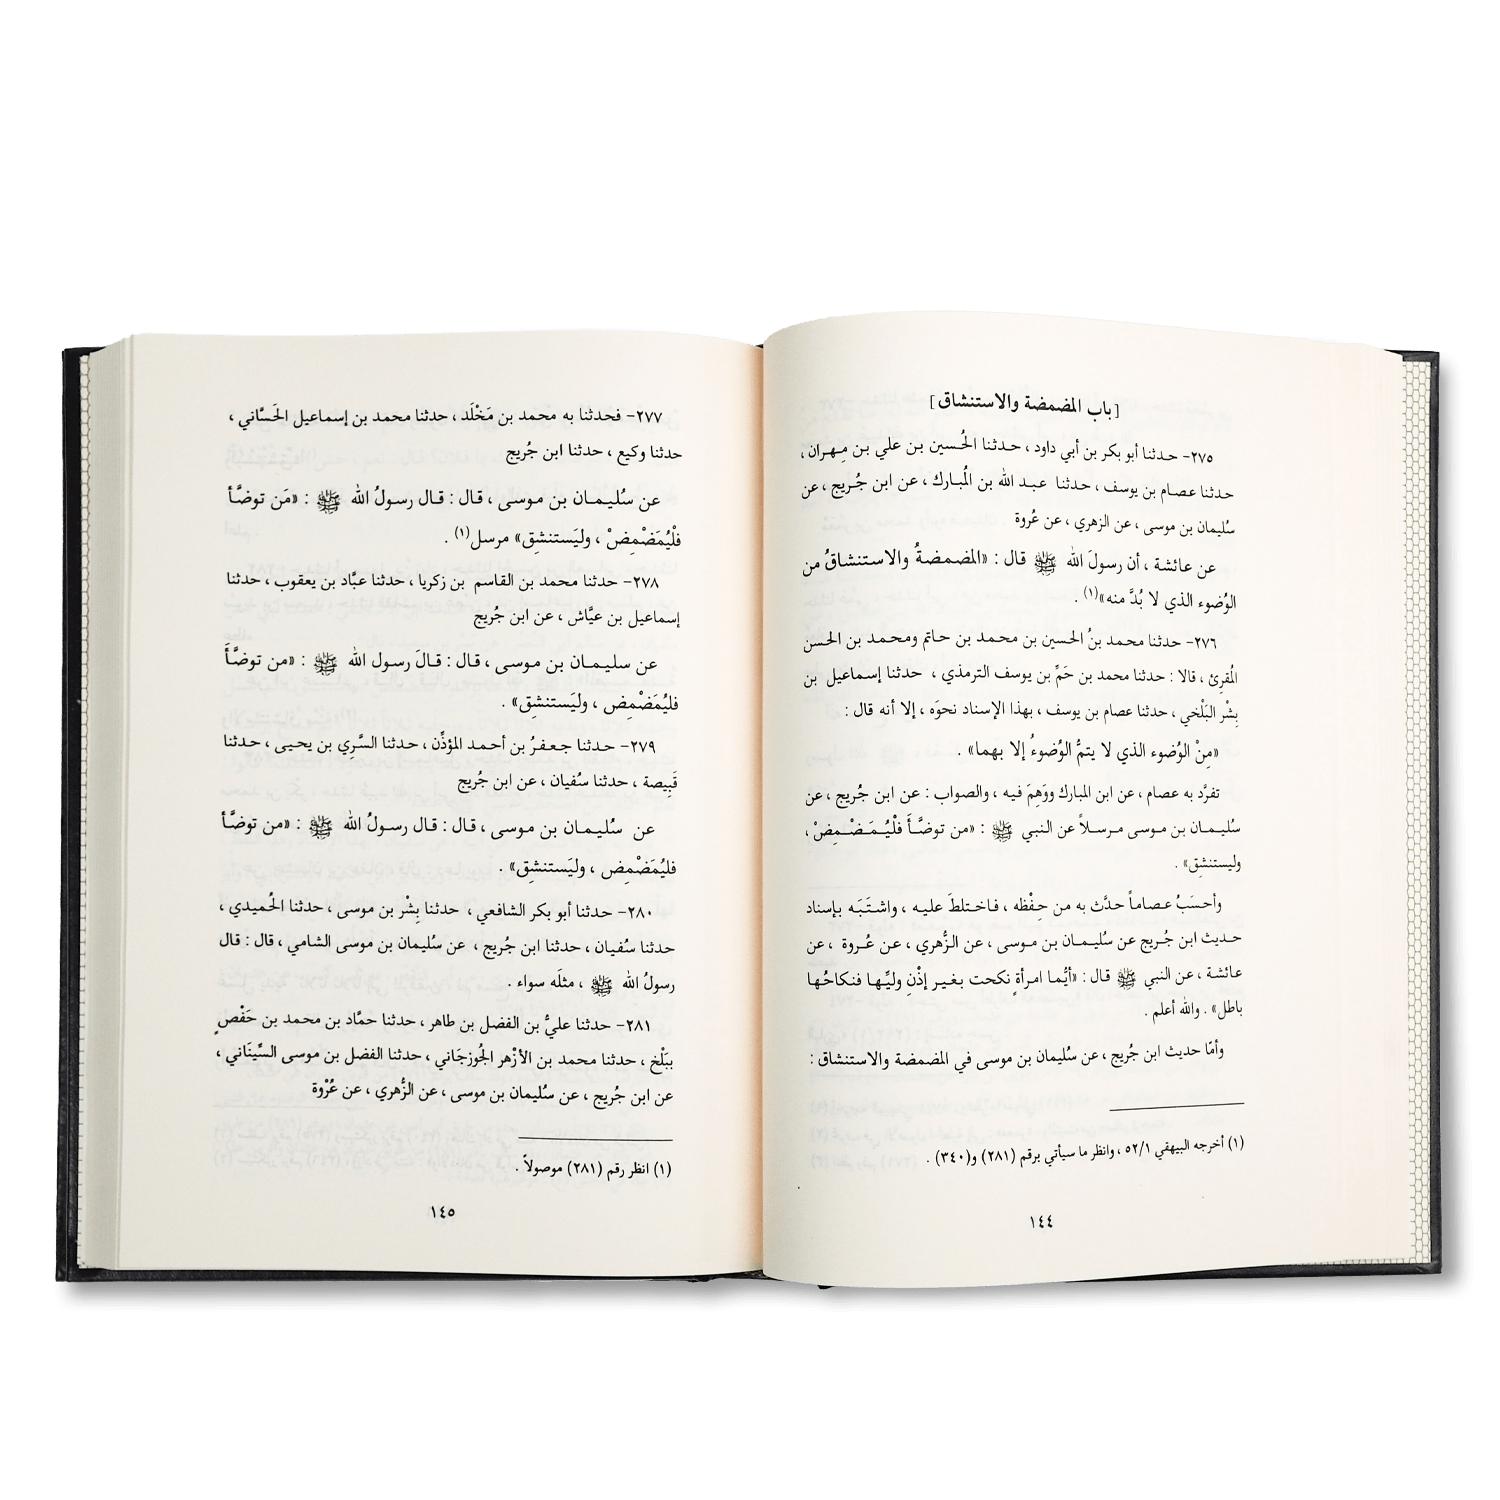 [باب المضمضة والاستنشاق]
٢٧٥- حدثنا أبو بكر بن أبي داود ، حدثنا الحُسين بن علي بن مِهران ،
حدثنا عصام بن يوسف ، حدثنا عبد الله بن المُبارك ، عن ابن جُريج ، عن
سُليمان بن موسى ، عن الزهري ، عن عُروة
عن عائشة ، أن رسولَ الله ﷺ قال : «المضمضةُ والاستنشاقُ من
الوُضوء الذي لا بُدَّ منه»(١) .
٢٧٦- حدثنا محمد بنُ الحسين بن محمد بن حاتم ومحمد بن الحسن
المُقرئ ، قالا : حدثنا محمد بن حَمِّ بن يوسف الترمذي ، حدثنا إسماعيل بن
بِشْر البَلْخي ، حدثنا عصام بن يوسف ، بهذا الإسناد نحوَه ، إلا أنه قال :
«مِنْ الوُضوء الذي لا يتمُّ الوُضوءُ إلا بهما» .
تفرَّد به عصام ، عن ابن المبارك ووَهِمَ فيه ، والصواب : عن ابن جُريج ، عن
سُليمان بن موسى مرسلاً عن النبي ﷺ : «من توضَّأَ فلْيُمَضْمِضْ ،
وليستنشِق» .
وأحسَبُ عصاماً حدَّث به من حِفْظه ، فاختلطَ عليه ، واشتَبَه بإسناد
حديث ابن جُريج عن سُليمان بن موسى ، عن الزُّهري ، عن عُروة ، عن
عائشة ، عن النبي ﷺ قال : «أيُّما امرأةٍ نكحت بغير إذْنِ وليِّها فنكاحُها
باطل» . والله أعلم .
وأمّا حديث ابن جُريج ، عن سُليمان بن موسى في المضمضة والاستنشاق :
(١) أخرجه البيهقي ٥٢/١ ، وانظر ما سيأتي برقم (٢٨١) و(٣٤٠) .
١٤٤
٢٧٧- فحدثنا به محمد بن مَخْلَد ، حدثنا محمد بن إسماعيل الحَسَّاني ،
حدثنا وكيع ، حدثنا ابن جُريج
عن سُليمان بن موسى ، قال : قال رسولُ الله ﷺ : «مَن توضَّأ
فلْيُمَضْمِضْ ، وليَستنشِق» مرسل(١) .
٢٧٨- حدثنا محمد بن القاسم بن زكريا ، حدثنا عبَّاد بن يعقوب ، حدثنا
إسماعيل بن عيَّاش ، عن ابن جُريج
عن سليمان بن موسى ، قال : قالَ رسول الله ﷺ : «من توضَّأَ
فليُمَضْمِض ، وليَستنشِق» .
٢٧٩- حدثنا جعفرُ بن أحمد المؤذِّن ، حدثنا السَّرِي بن يحيى ، حدثنا
قَبِيصة ، حدثنا سُفيان ، عن ابن جُريج
عن سُليمان بن موسى ، قال : قال رسولُ الله ﷺ : «من توضَّأ
فليُمَضْمِض ، وليَستنشِق» .
٢٨٠- حدثنا أبو بكر الشافعي ، حدثنا بِشْر بن موسى ، حدثنا الحُميدي ،
حدثنا سُفيان ، حدثنا ابن جُريج ، عن سُليمان بن موسى الشامي ، قال : قال
رسولُ الله ﷺ ، مثلَه سواء .
٢٨١- حدثنا عليُّ بن الفضل بن طاهر ، حدثنا حمَّاد بن محمد بن حَفْصٍ
ببَلْخ ، حدثنا محمد بن الأَزْهر الجُوزجَاني ، حدثنا الفضل بن موسى السِّينَاني ،
عن ابن جُريج ، عن سُليمان بن موسى ، عن الزُّهري ، عن عُرْوة
(١) انظر رقم (٢٨١) موصولاً .
١٤٥